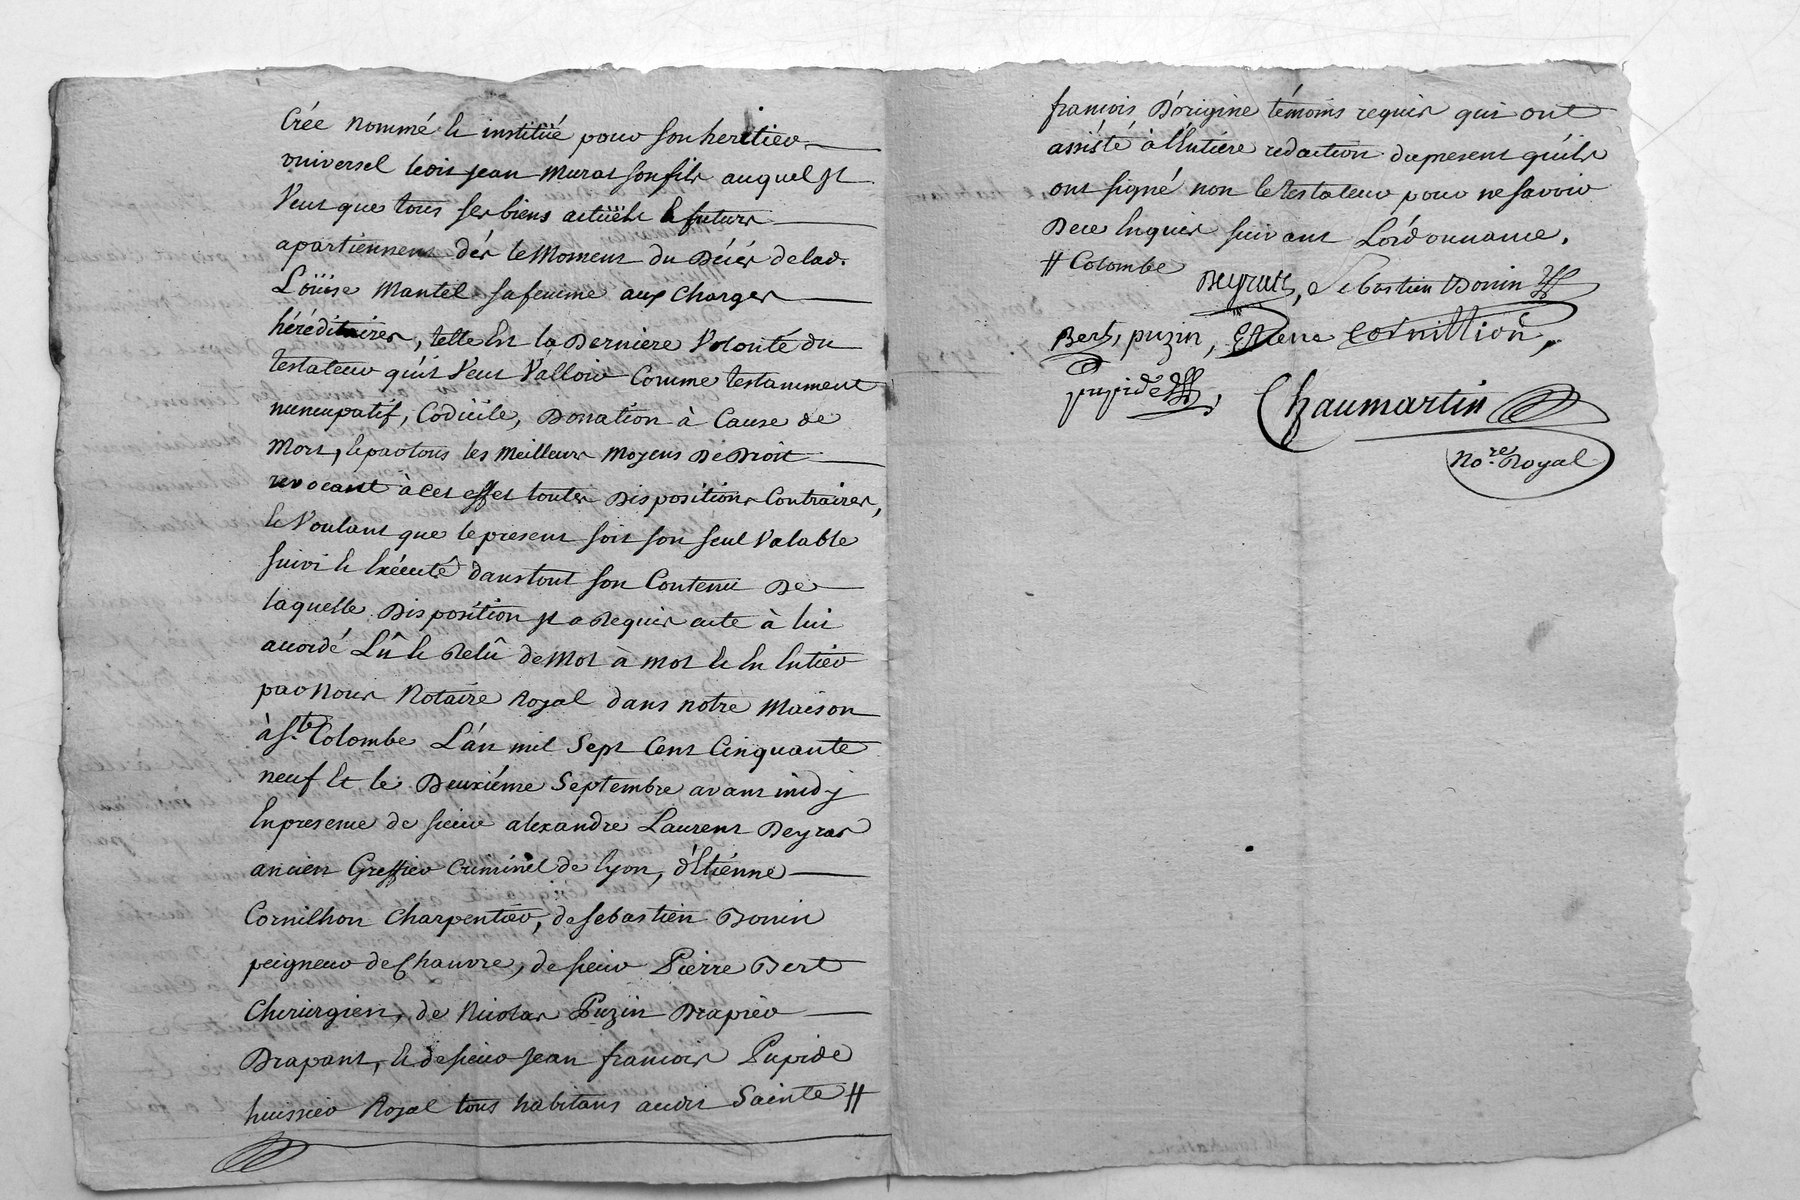 Crée nommé & institüé pour son heritier
vniversel ledit jean murat son fils auquel jl
Veut que tous ses biens actüels & futurs
apartiennent dés le Moment du Décés de lad.
Loüise Mantel sa femme aux Charges
héréditaires, telle Est la Derniere Volonté du
testateur qu'il Veut Valloir Comme testamment
nuncupatif, Codicile, Donation à Cause de
Mort, & par tous les Meilleurs Moyens De Droit
revocant à cet effet toutes Dispositions Contraires,
& Voulant que le present soit son seul Valable
suivi & Exécuté dans tout son Contenu De
laquelle Disposition jl a Requis acte à lui
acordé Lû & Relû de Mot à mot & En Entier
par Nous Notaire Royal dans notre Maison
à Ste. Colombe L'án mil Sept Cent Cinquante
neuf Et le Deuxiéme Septembre avant midy
En presence de sieur alexandre Laurent Deyras
ancien Greffier Criminel de lyon, d'Etiénne
Cornilhon Charpentier, de sebastien Bonin
peigneur de Chanvre, de sieur Pierre Bert
Chirurgien, de Nicolas Puzin Drapier
Drapant, & de sieur jean francois Pupide
huissier Royal tous habitans audit Sainte #
francois D'origine témoins requis qui ont
assisté à l'Entiére redaction du present qu'ils
ont signé non le testateur pour ne savoir
De ce Enquis suivant L'órdonnance.
# Colombe
Deyras, Sebastien Bonin
Bert, puzin, Etiene Cornillion,
pupide,
Chaumartin
No.re Royal